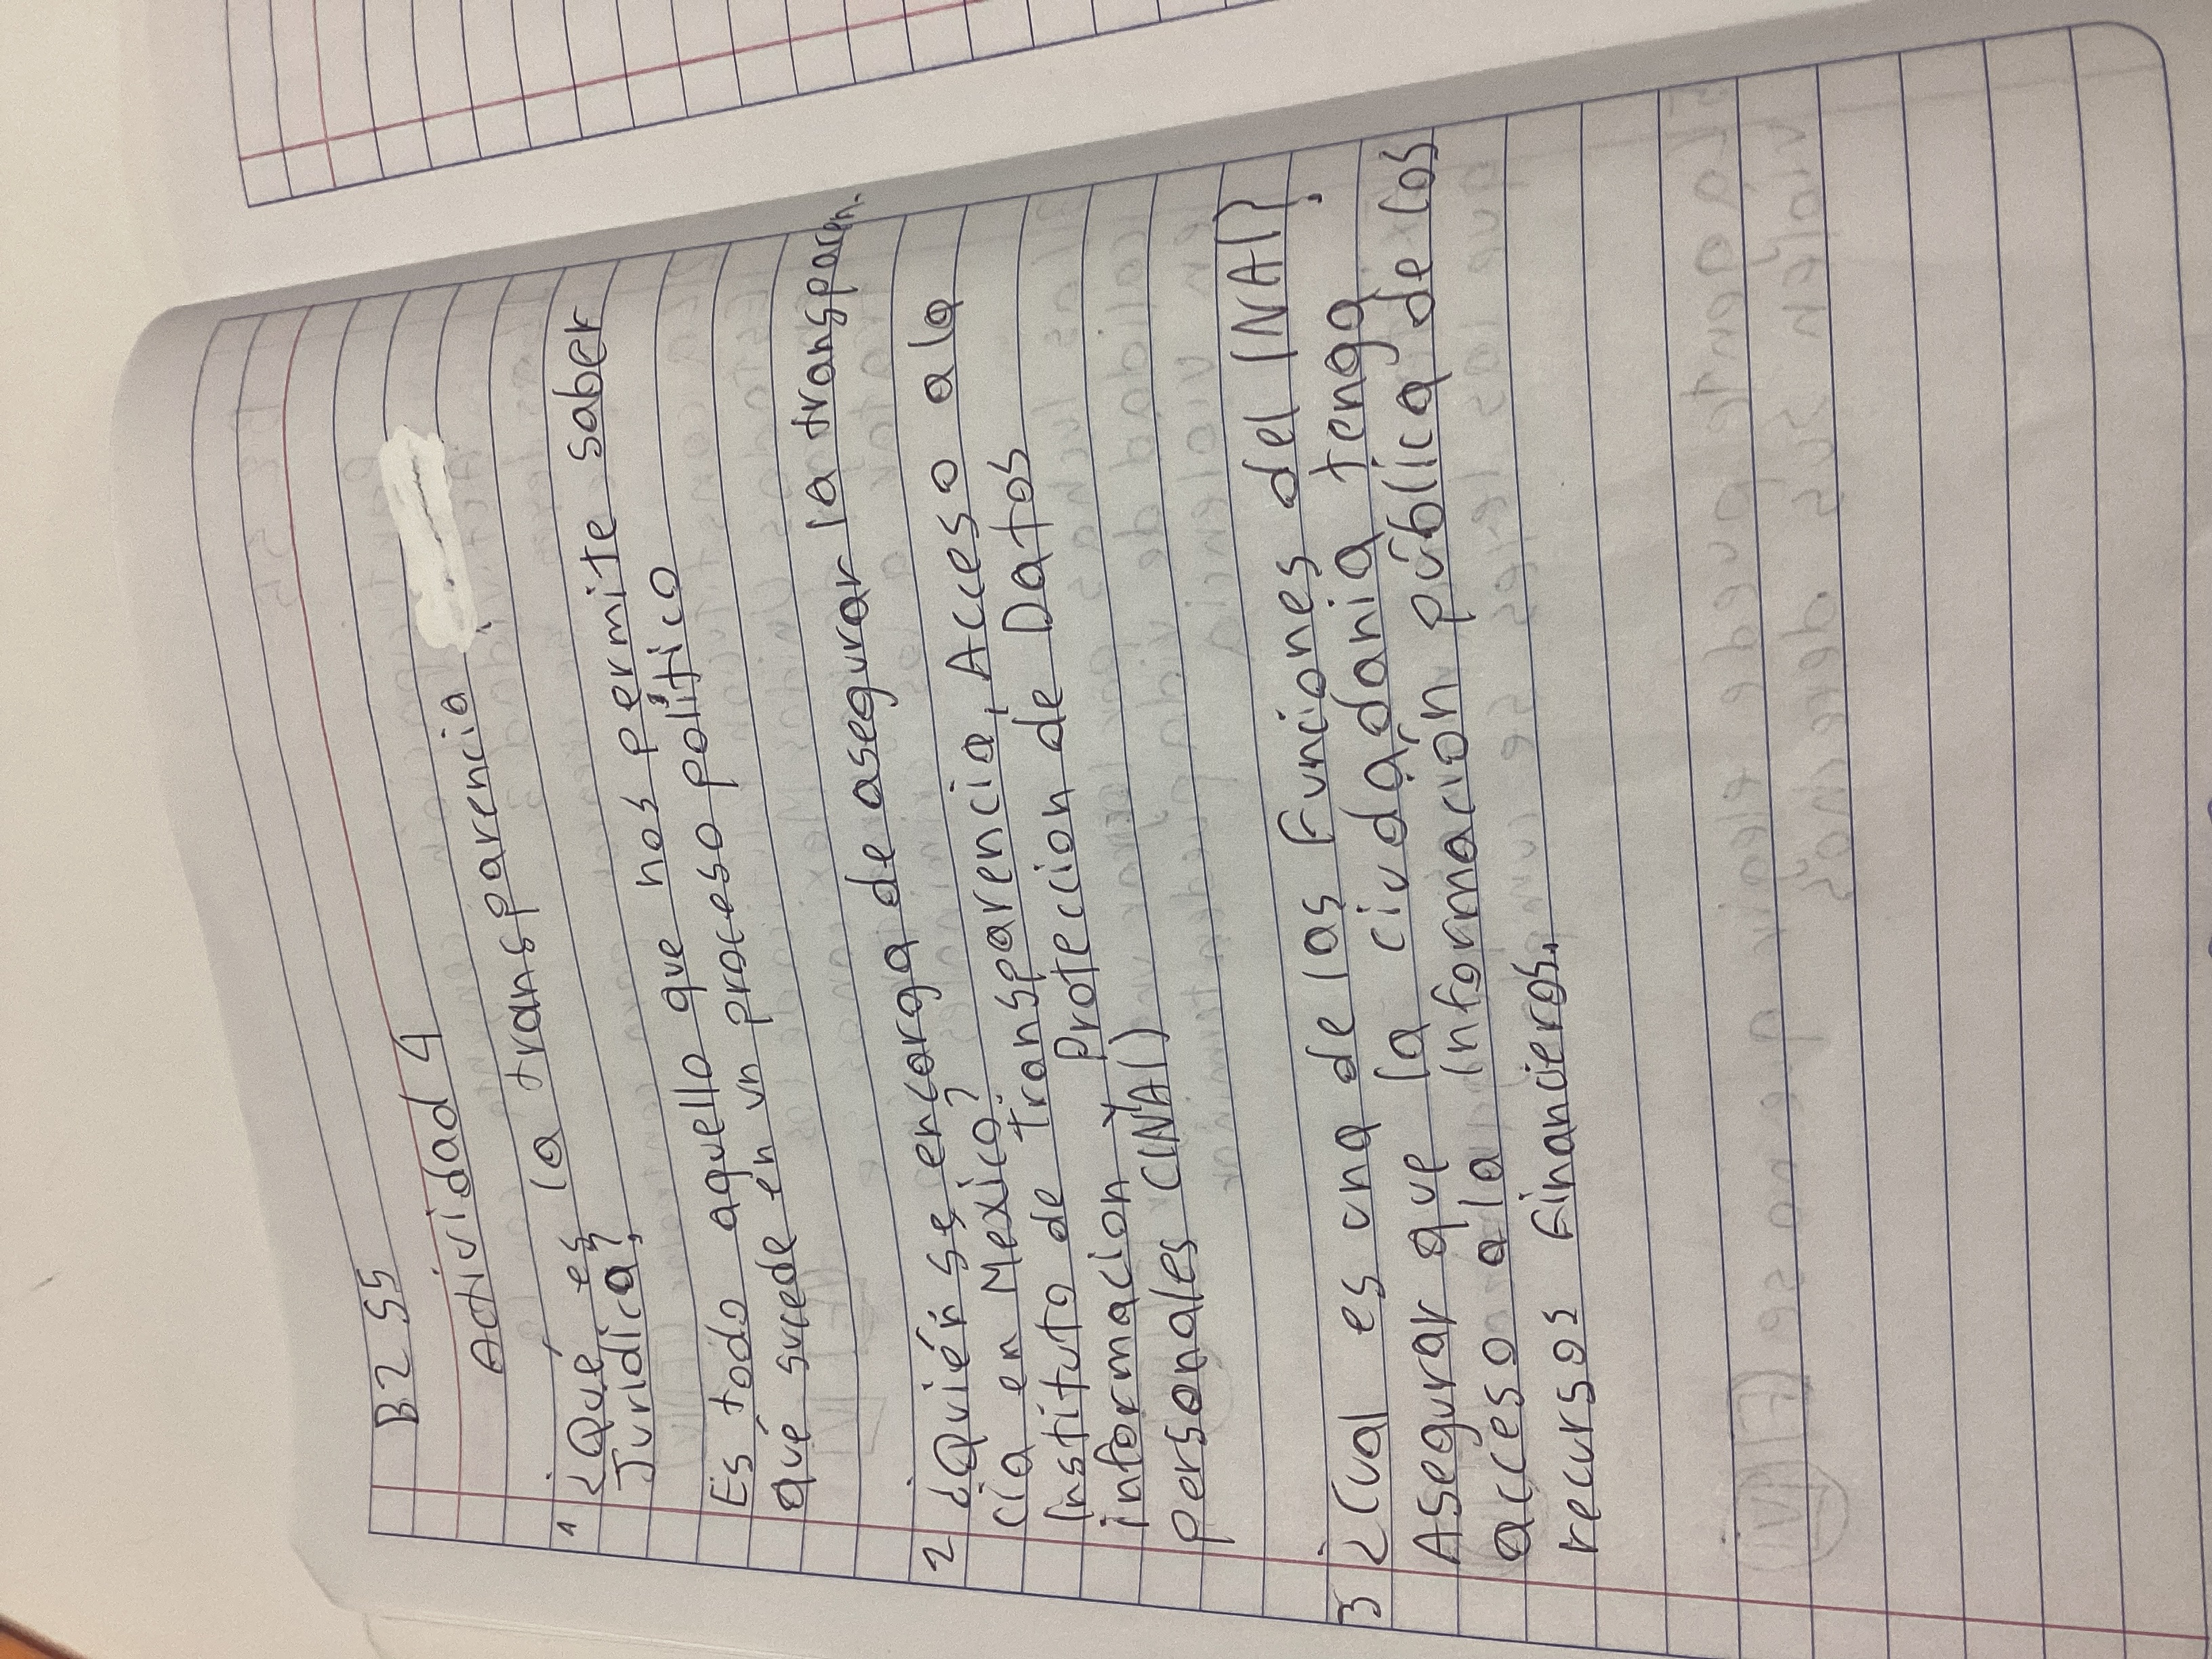 B2 S5
Actividad 4
Actividad transparencia
1 ¿Qué es la transparencia
Jurídica?
Es todo aquello que nos permite saber
Qué sucede en un proceso político
2 ¿Quién se encarga de asegurar la transparen.
cia en Mexico?
Instituto de transparencia, Acceso a la
información y Proteccion de Datos
personales (INAI)
3 ¿Cual es una de las Funciones del INAI?
Asegurar que la ciudadanía tenga
acceso a la información pública de los
recursos Financieros.